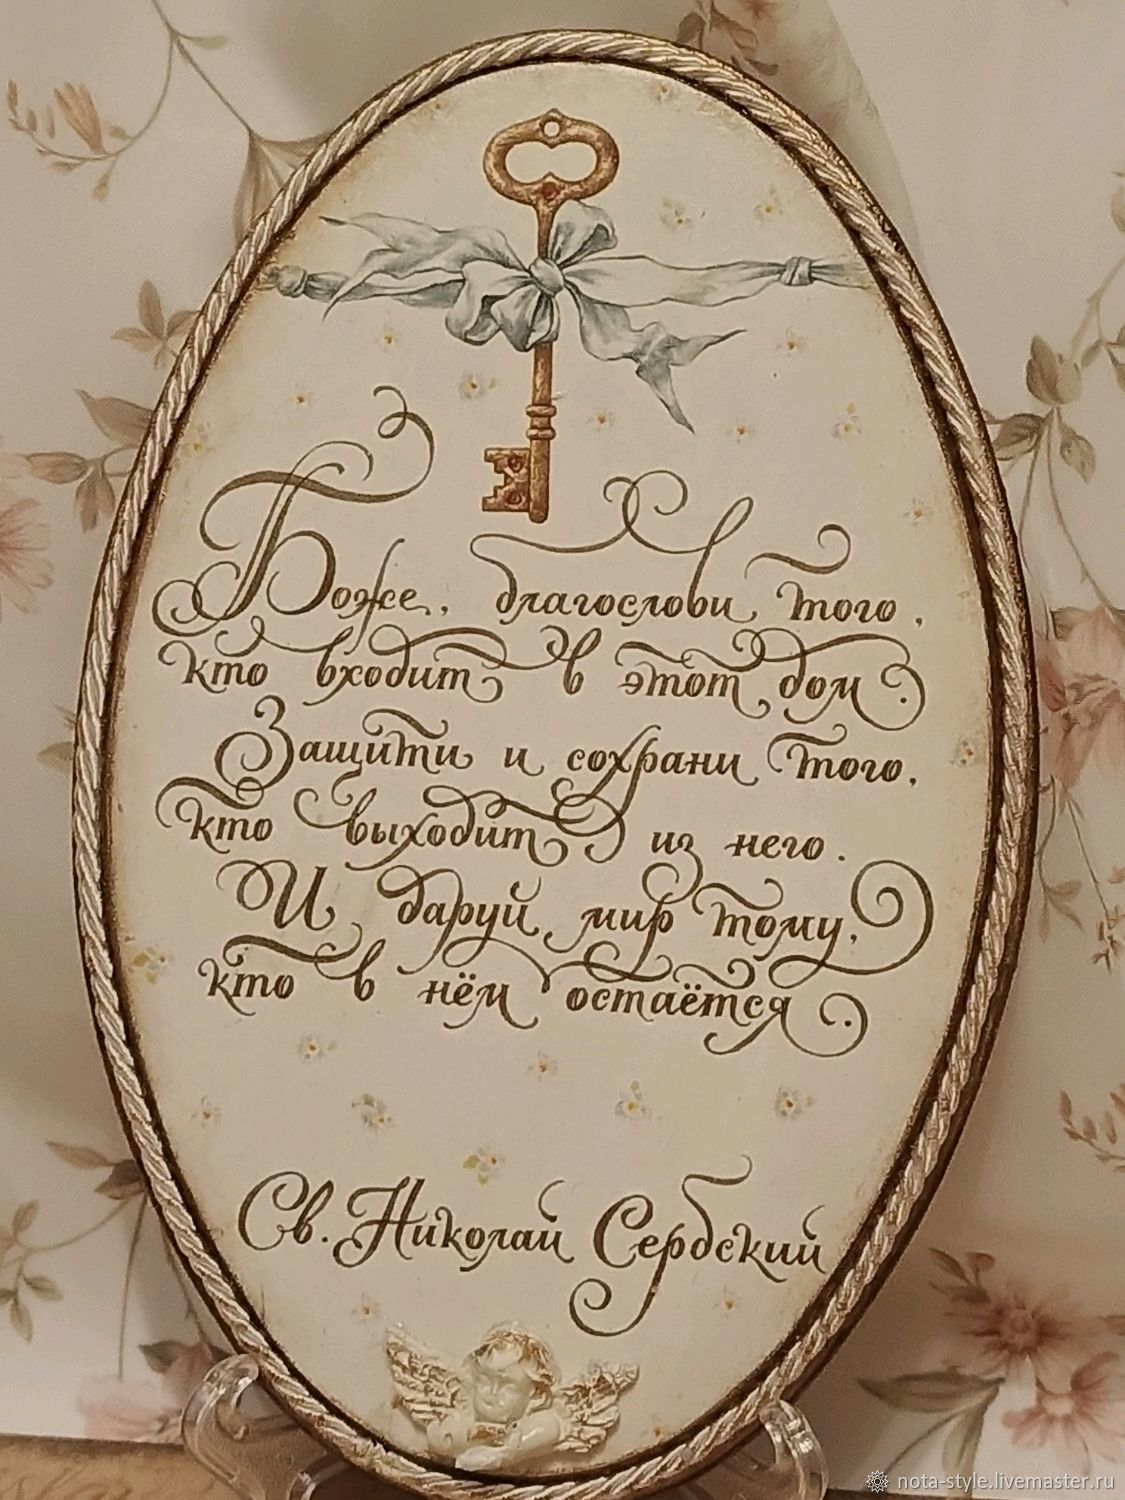 Боже, благослови того,
кто входит в этот дом.
Защити и сохрани того,
кто выходит из него.
И даруй мир тому,
кто в нём остаётся.
Св. Николай Сербский
nota-style.livemaster.ru